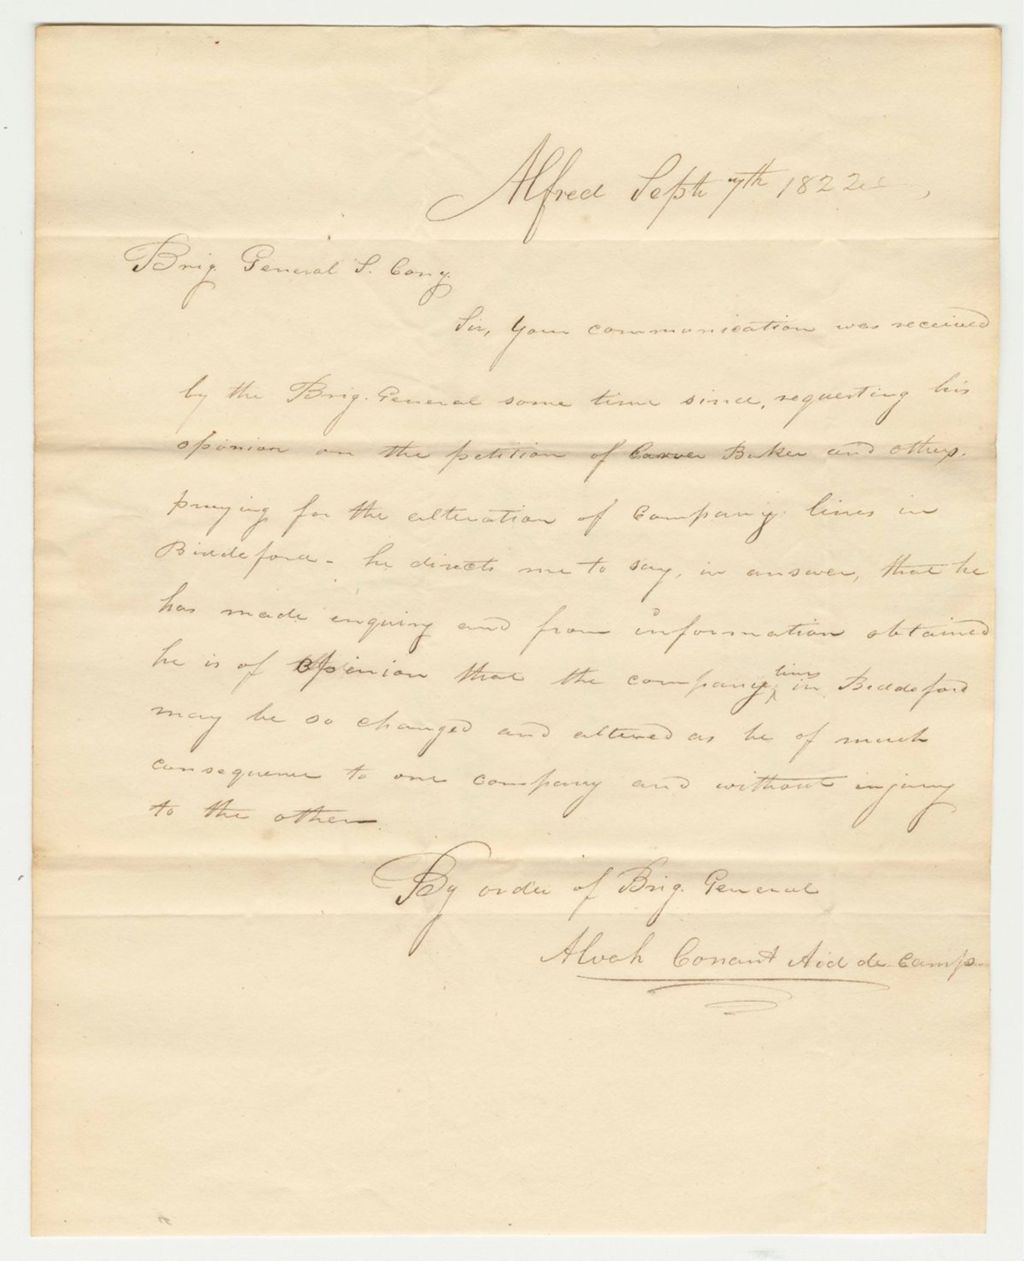 Alfred Sept 7th 1822
Brig. General S. Cony.
Sir, Your communication was received
by the Brig. General some time since, requesting his
opinion on the petition of and others.
praying for the alteration of Company lines in
Biddeford - he directs me to say, in answer, that he
has made enquiry and from information obtained
he is of opinion that the company lines in Biddeford
may be so changed and altered as be of much
consequence to one company and without injury
to the other.
By order of Brig. General
Alvah Conant Aid de camp